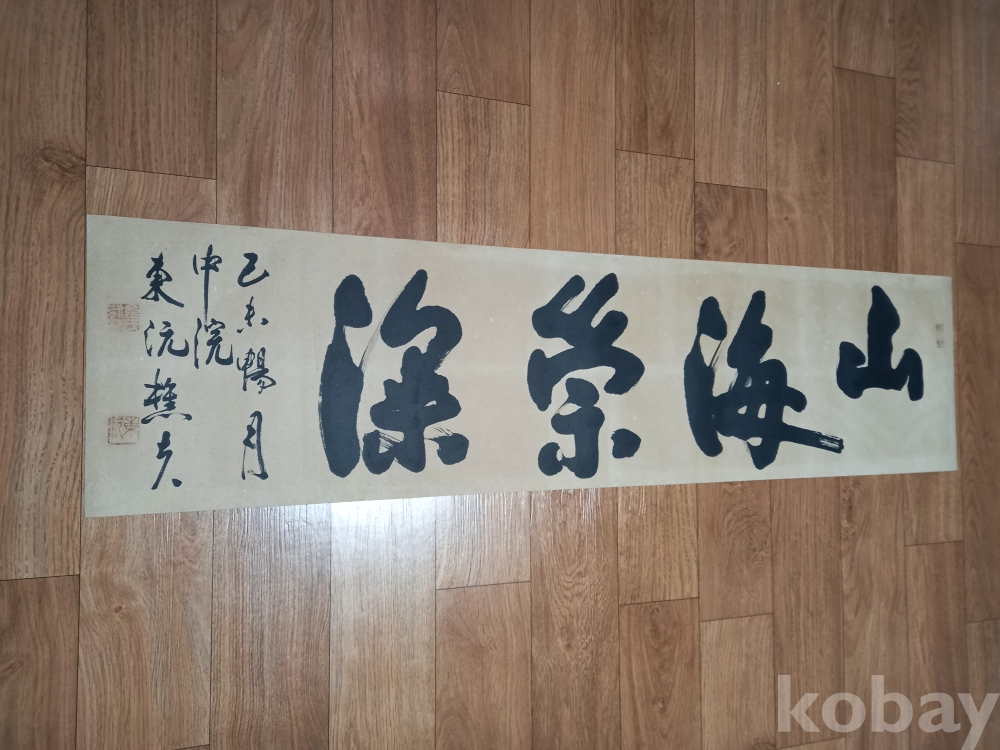 山海崇深
己未暢月
中浣
東沅樵夫
kobay